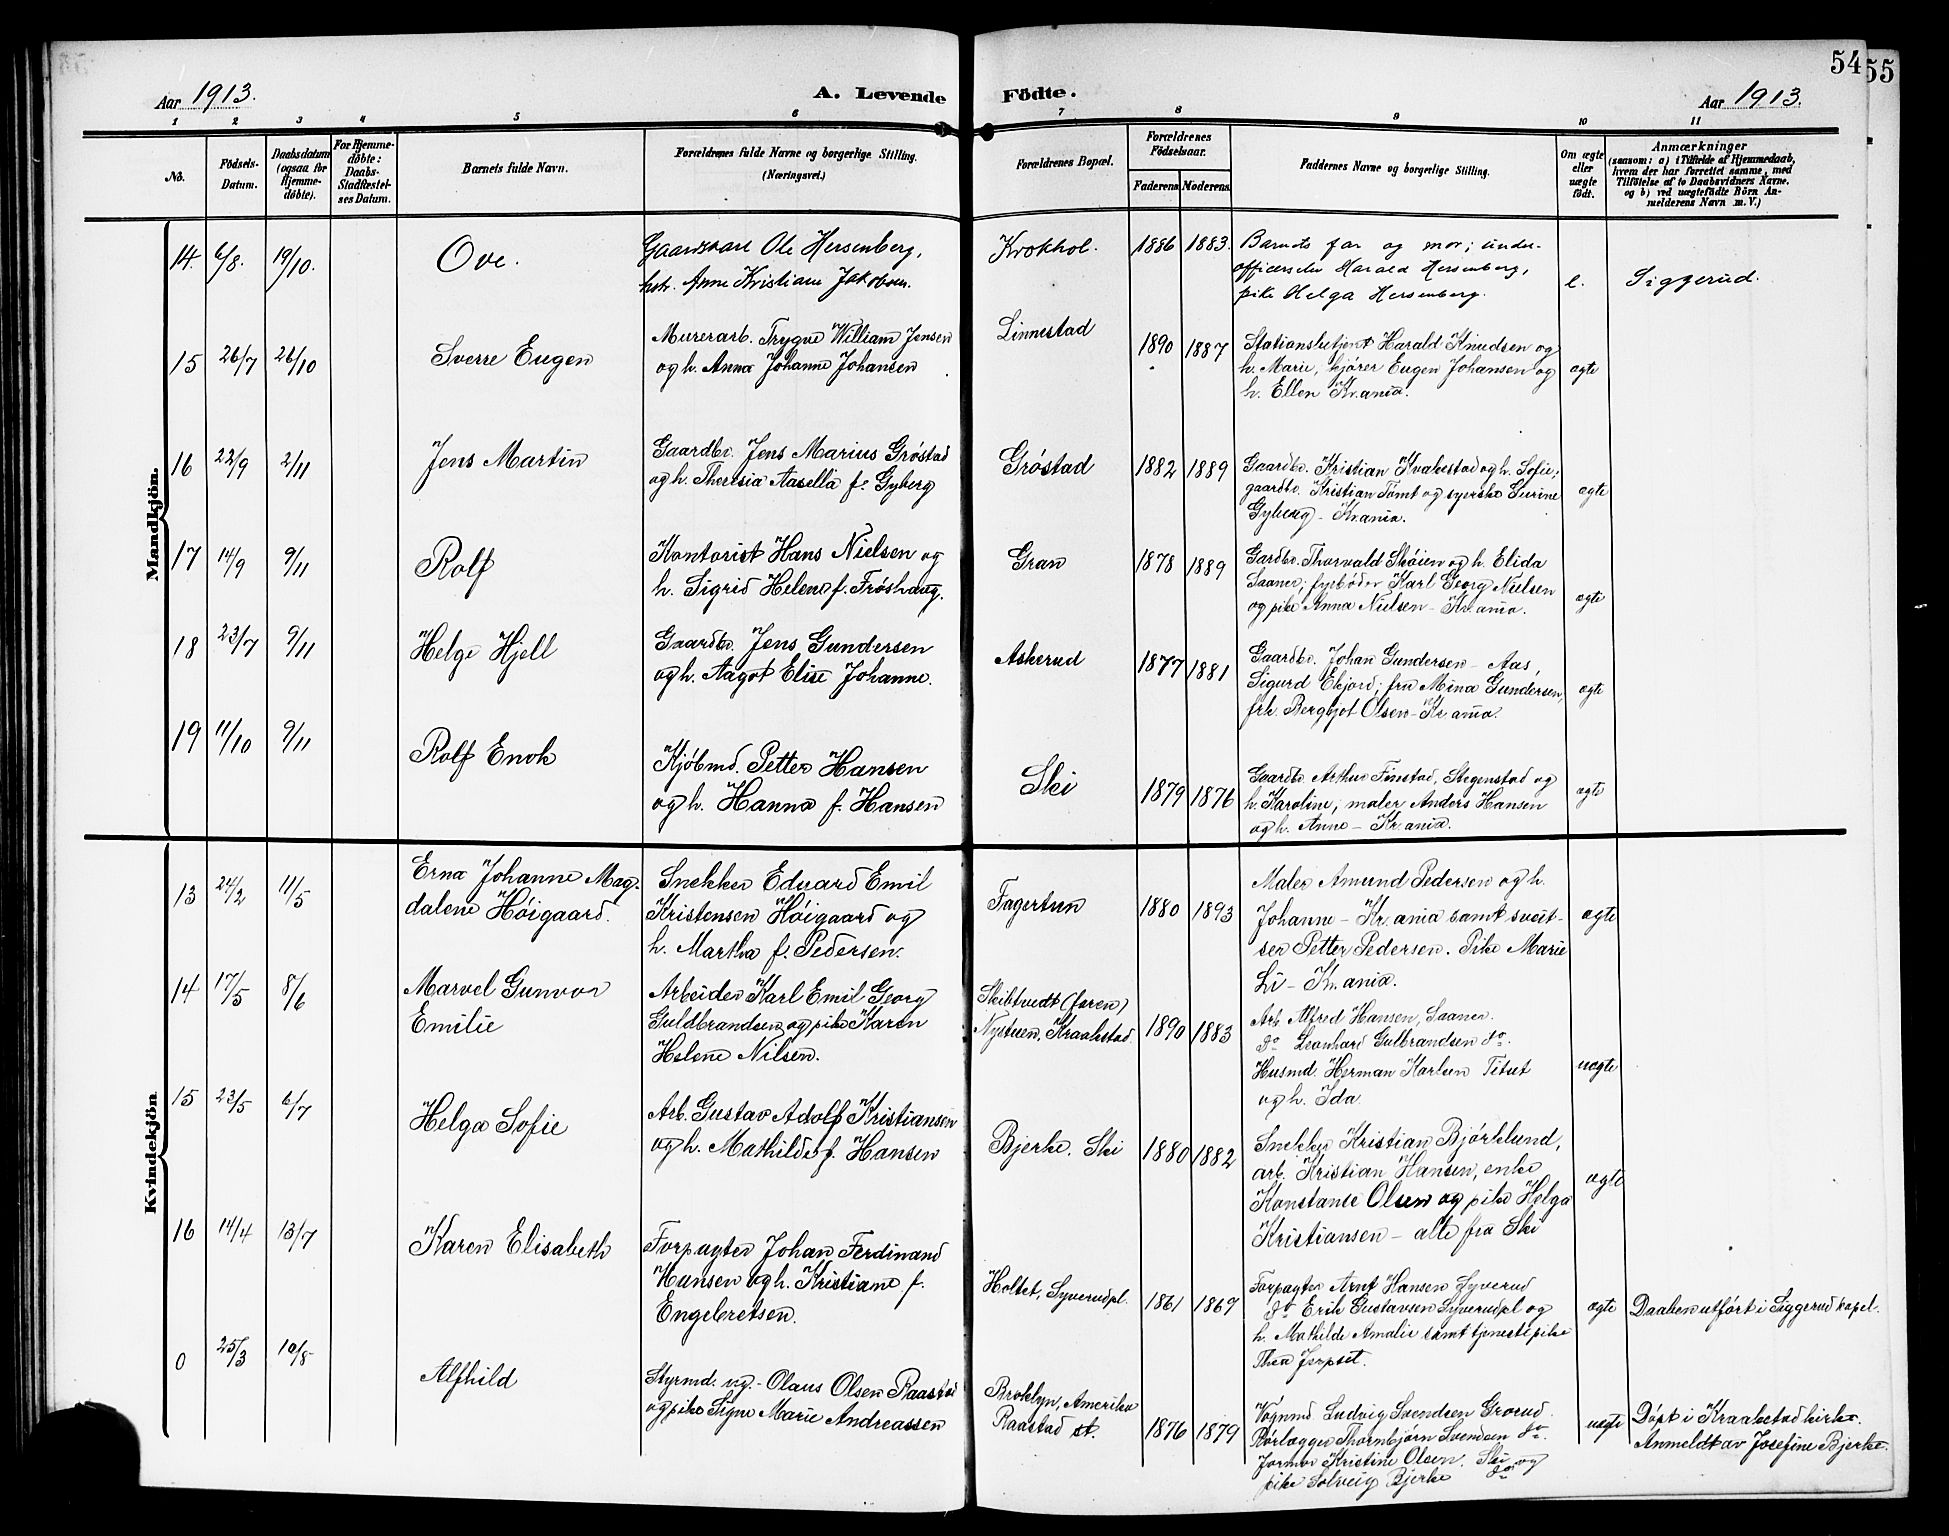 54
55
Aar 1913.
A. Levende Födte.
Aar 1913.
1 2 3 4 5 6 7 8 9 10 11
No.
Födsels-Datum.
Daabsdatum (ogsaa for Hjemmedöbte).
For Hjemmedöbte: Daabs-Stadfæstelses Datum.
Barnets fulde Navn.
Forældrenes fulde Navne og borgerlige Stilling. (Næringsvei.)
Forældrenes Bopæl.
Forældrenes Födselsaar.
Faderens Moderens
Faddernes Navne og borgerlige Stilling.
Om ægte eller uægte födt.
Anmærkninger
(saasom: a) i Tilfælde af Hjemmedaab,
hvem der har forrettet samme, med
Tilföielse af to Daabsvidners Navne,
og b) ved uægtefödte Börn An-
melderens Navn m. V.)
Mandkjön.
14. 6/8. 19/10. Ove.
Ole Hersenberg,
hstr. Anne Kristiane Jakobsen.
Krokhol. 1886 1883.
Barnets far og mor; under-
officerselev Harald Hersenberg,
pike Helga Hersenberg.
e. Siggerud.
15 26/7 26/10 Sverre Eugen
Murerarb. Trygve William Jensen
og h. Anna Johanne Johansen
Linnestad 1890 1887
Stationsbetjent Harald Knudsen og
h. Marie, kjører Eugen Johansen og
h. Ellen Kr.ania.
ægte
16 22/9 2/11 Jens Martin
Gaardbr. Jens Marius Grøstad
og h. Theresia Aasella f. Gyberg
Grøstad 1882 1889
Gaardbr. Kristian Kvakestad og h. Sofie;
gaardbr. Kristian Tømt og syerske Surine
Gyberg - Kr.ania.
ægte
17 14/9 9/11 Rolf
Kontorist Hans Nielsen og
h. Sigrid Helene f. Frøshaug.
Gran 1878 1889
Gardbr. Thorvald Skøien og h. Elida
Saaner; fyrbøder Karl Georg Nielsen
og pike Anna Nielsen - Kr.ania.
ægte
18 23/7 9/11 Helge Hjell
Gaardbr. Jens Gundersen
og h. Aagot Elise Johanne.
Askerud 1877 1881
Gaardbr. Johan Gundersen - Aas,
Sigurd Ekjord; fru Mina Gundersen,
frk. Bergljot Olsen - Kr.ania.
ægte
19 11/10 9/11 Rolf Enok
Kjøbmd. Petter Hansen
og h. Hanna f. Hansen
Ski 1879 1876
Gaardbr. Arthur Finstad, Stegenstad og
h. Karoline; maler Anders Hansen
og h. Anne - Kr.ania.
ægte
Kvindekjön
13 24/2 11/5 Erna Johanne Mag-
dalene Høigaard.
Snekker Edvard Emil
Kristensen Høigaard og
h. Martha f. Pedersen.
Fagertun 1880 1893
Maler Amund Pedersen og h.
Johanne - Kr.ania samt sveit-
ser Petter Pedersen. Pike Marie
Li - Kr.ania.
ægte
14 17/5 8/6 Marvel Gunvor
Emilie
Arbeider Karl Emil Georg
Guldbrandsen og pike Karen
Helene Nilsen.
Skibtvedt (faren)
Nystuen, Kraakstad. 1890 1883
Arb. Alfred Hansen, Saaner.
do Leonhard Gulbrandsen do.
Husmd. Herman Karlsen Titut
og h. Ida
uægte
15 23/5 6/7 Helga Sofie
Arb. Gustav Adolf Kristiansen
og h. Mathilde f. Hansen
Bjerke. Ski 1880 1882
Snekker Kristian Bjørklund,
arb. Kristian Hansen, enke
Konstanse Olsen og pike Helga
Kristiansen - alle fra Ski
ægte
16 14/4 13/7 Karen Elisabeth
Forpagter Johan Ferdinand
Hansen og h. Kristiane f.
Engebretsen.
Holtet, Syverudpl. 1861 1869
Forpagter Arnt Hansen Syverud
do Erik Gustavsen Syverudpl og
h. Mathilde Amalie samt tjenestepike
Thea
ægte Daaben utført i Siggerud kapel.
0 25/3 10/8 Alfhild
Styrmd. ug. - Olaus Olsen Raastad
og pike Signe Marie Andreassen
Broklyn, Amerika
Raastad st. 1876 1879
Vognmd. Ludvig Svendsen Grorud
Rørlægger Thornbjørn Svendsen do.
Jormor Kristine Olsen. Ski og
pike Solveig Bjerke do
uægte Døpt i Kraakstad kirke.
Anmeldt av Josefine Bjerke.